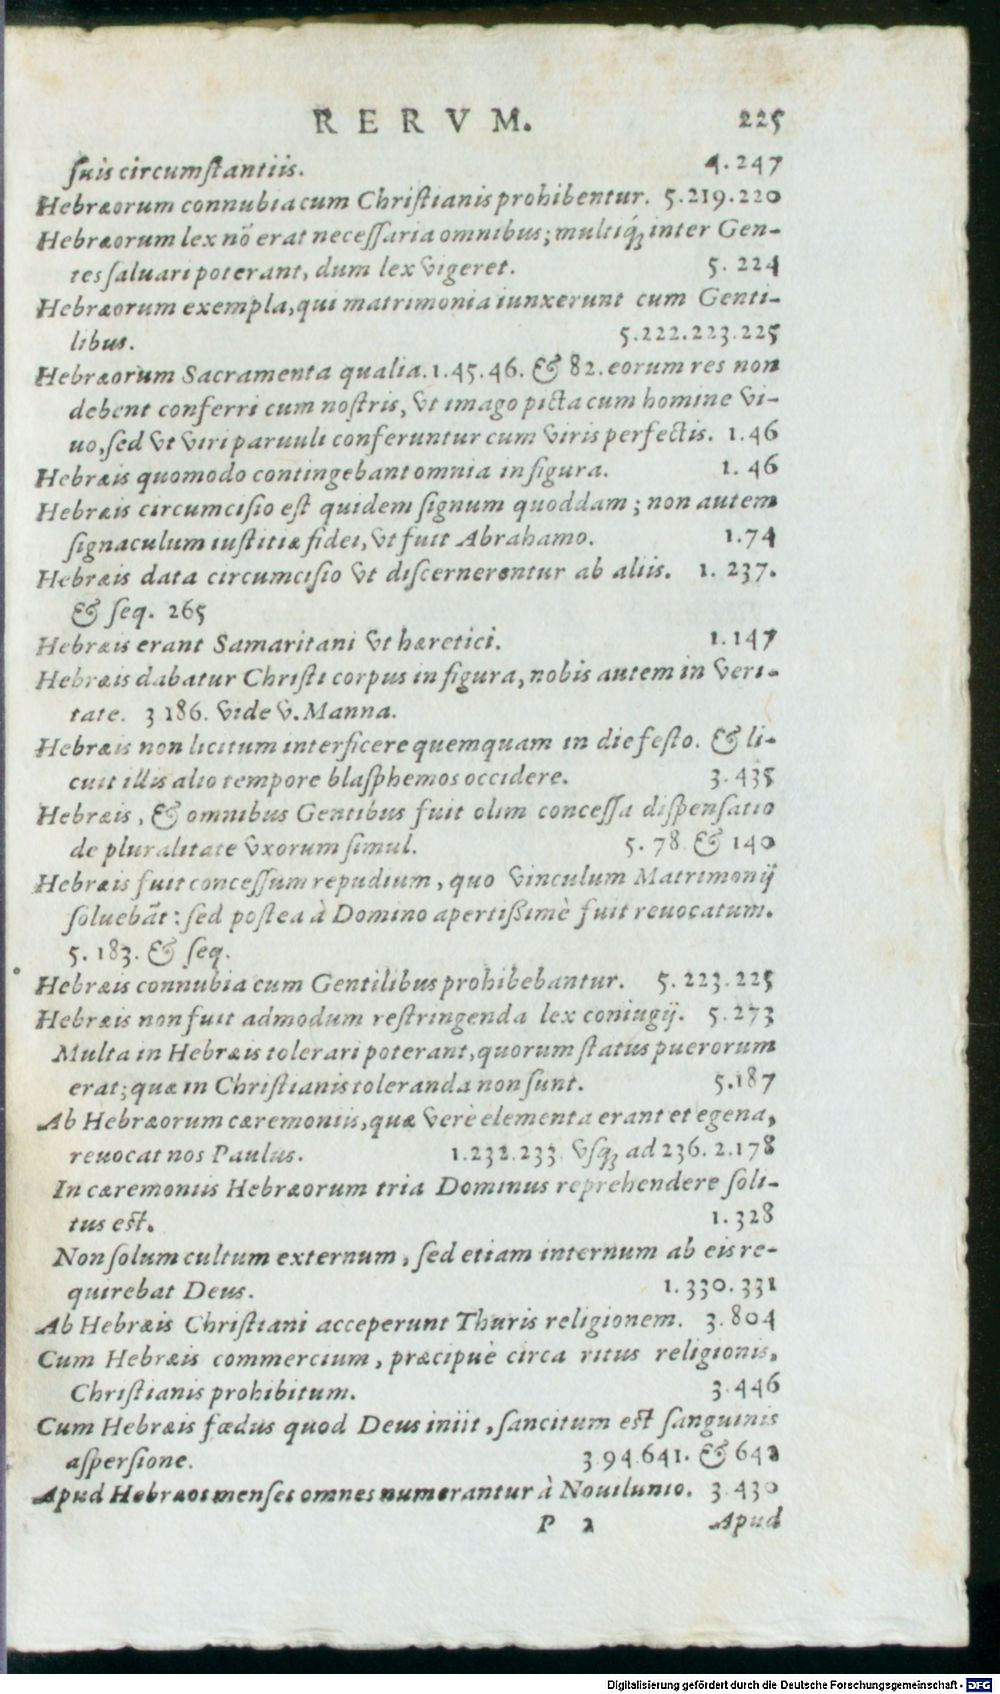 RERVM. 225
ſuis circumſtantiis. 4.247
Hebræorum connubia cum Chriſtianis prohibentur. 5.219.220
Hebræorum lex nõ erat neceſſaria omnibus; multiq́; inter Gen-
tes ſaluari poterant, dum lex vigeret. 5. 224
Hebræorum exempla, qui matrimonia iunxerunt cum Genti-
libus. 5.222.223.225
Hebræorum Sacramenta qualia. 1.45.46. & 82. eorum res non
debent conferri cum noſtris, vt imago picta cum homine vi-
uo, ſed vt viri paruuli conferuntur cum viris perfectis. 1.46
Hebræis quomodo contingebant omnia in figura. 1. 46
Hebræis circumciſio eſt quidem ſignum quoddam ; non autem
ſignaculum iuſtitiæ fidei, vt fuit Abrahamo. 1.74
Hebræis data circumciſio vt diſcernerentur ab aliis. 1. 237.
& ſeq. 265
Hebræis erant Samaritani vt hæretici. 1.147
Hebræis dabatur Chriſti corpus in figura, nobis autem in veri-
tate. 3.186. vide v. Manna.
Hebræis non licitum interficere quemquam in die feſto. & li-
cuit illis alio tempore blaſphemos occidere. 3.435
Hebræis, & omnibus Gentibus fuit olim conceſſa diſpenſatio
de pluralitate vxorum ſimul. 5. 78. & 140
Hebræis fuit conceſſum repudium, quo vinculum Matrimonij
ſoluebãt: ſed poſtea à Domino apertißimè fuit reuocatum.
5. 183. & ſeq.
Hebræis connubia cum Gentilibus prohibebantur. 5.223.225
Hebræis non fuit admodum reſtringenda lex coniugij. 5.273
Multa in Hebræis tolerari poterant, quorum ſtatus puerorum
erat; quæ in Chriſtianis toleranda non ſunt. 5.187
Ab Hebræorum cæremoniis, quæ verè elementa erant et egena,
reuocat nos Paulus. 1.232.233. vſq; ad 236. 2.178
In cæremoniis Hebræorum tria Dominus reprehendere ſoli-
tus eſt. 1.328
Non ſolum cultum externum, ſed etiam internum ab eis re-
quirebat Deus. 1.330.331
Ab Hebræis Chriſtiani acceperunt Thuris religionem. 3.804
Cum Hebræis commercium, præcipuè circa ritus religionis,
Chriſtianis prohibitum. 3.446
Cum Hebræis fœdus quod Deus iniit, ſancitum eſt ſanguinis
aſperſione. 3.94.641. & 642
Apud Hebræos menſes omnes numerantur à Nouilunio. 3.430
P 2 Apud
Digitalisierung gefördert durch die Deutsche Forschungsgemeinschaft - DFG